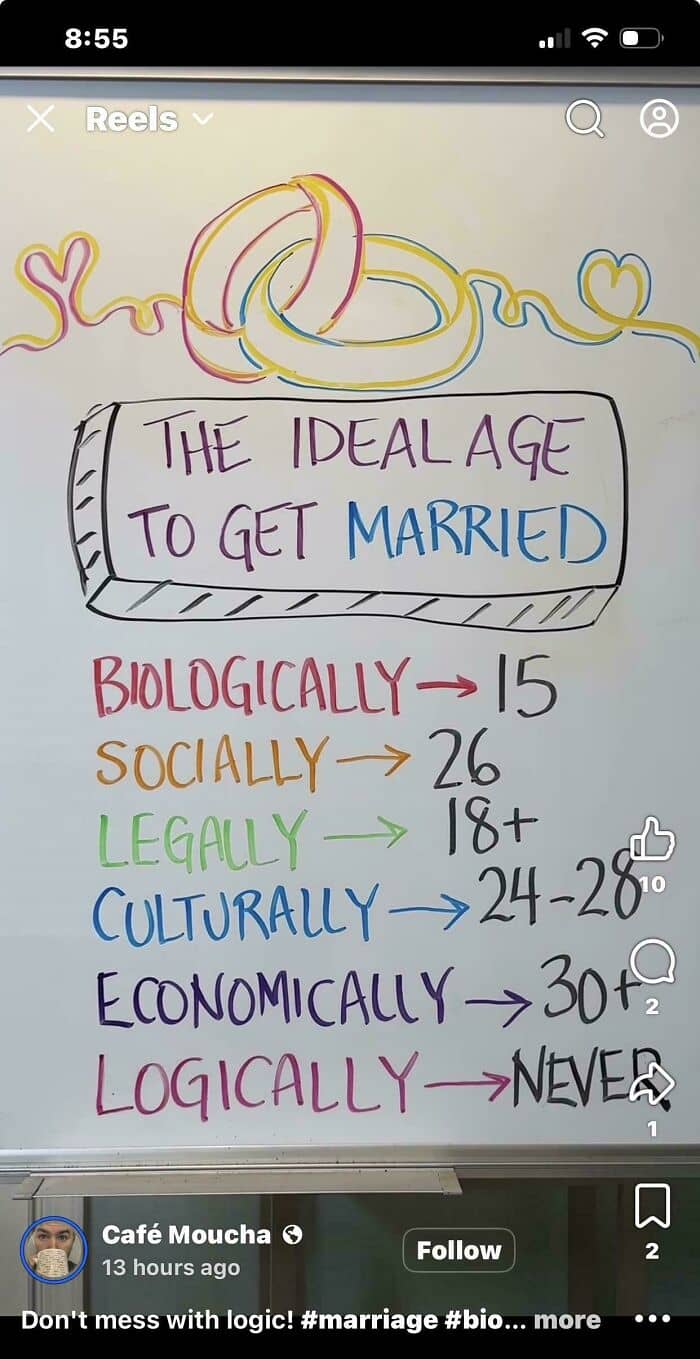 8:55
Reels
THE IDEAL AGE
TO GET MARRIED
BIOLOGICALLY → 15
SOCIALLY → 26
LEGALLY → 18+
CULTURALLY → 24-28
ECONOMICALLY → 30+
LOGICALLY → NEVER
10
2
1
2
Café Moucha
13 hours ago
Follow
Don't mess with logic! #marriage #bio... more